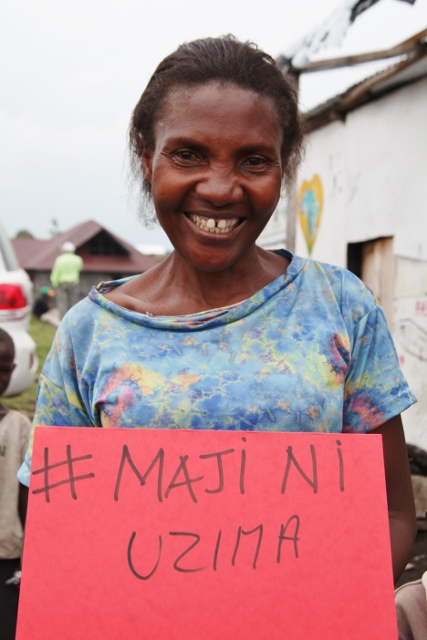 # MAJI NI
UZIMA